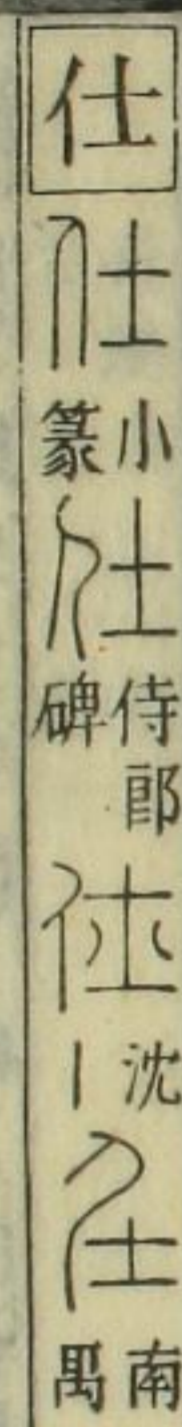 仕
仕
小篆
仕
侍郎碑
仕
沈丨
仕
南禺